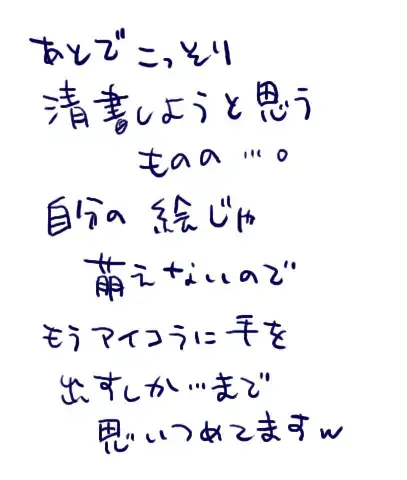 あとでこっそり
清書しようと思う
ものの…。
自分の絵じゃ
萌えないので
もうアイコラに手を
出すしか…まで
思いつめてますw